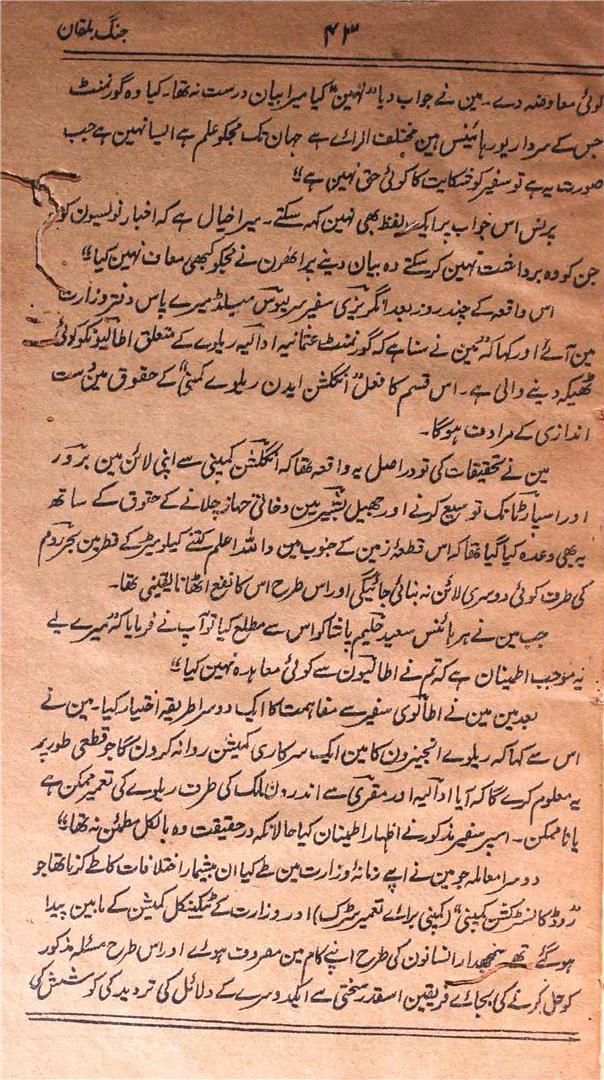 جنگ بلقان
۴۳
کوئی معاوضہ دے۔ مین نے جواب دیا "نہین" کیا میرا بیان درست نہ تھا۔ کیا وہ گورنمنٹ
جس کے سردار یورہائینس ہین مختلف الرائے ہے جہان تک مجکو علم ہے ایسا نہین ہے جب
صورت یہ ہے تو سفیر کو شکایت کا کوئی حق نہین ہے"
پرنس اس جواب پر ایک لفظ بھی نہین کہہ سکتے۔ میرا خیال ہے کہ اخبار نویسون کو
جن کو وہ برداشت نہین کر سکتے وہ بیان دینے پر انھون نے مجکو کبھی معاف نہین کیا"
اس واقعہ کے چند روز بعد انگریزی سفیر سر لیوس میلڈ میرے پاس دفتر وزارت
مین آئے اور کہا کہ "مین نے سنا ہے کہ گورنمنٹ عثمانیہ اوالیہ ریلوے کے متعلق اطالیونکو کوئی
ٹھیکہ دینے والی ہے۔ اس قسم کا فعل "انگلش ایدن ریلوے کمپنی" کے حقوق مین دست
اندازی کے مرادف ہوگا۔
مین نے تحقیقات کی تو دراصل یہ واقعہ تھا کہ انگلش کمپنی سے اپنی لائن مین بردور
اور اسپارٹا تک توسیع کرنے اور جھیل بشہیر مین دخانی جہاز چلانے کے حقوق کے ساتھ
یہ بھی وعدہ کیا گیا تھا کہ اس قطعۂ زمین کے جنوب مین واللہ اعلم کتنے کیلومیٹر کے قطر مین بحر روم
کی طرف کوئی دوسری لائن نہ بنائی جائیگی اور اس طرح اس کا نفع اٹھانا یقینی تھا۔
جب مین نے ہرہائنس سعید حلیم پاشا کو اس سے مطلع کیا تو آپ نے فرمایا کہ "میرے لیے
یہ موجب اطمینان ہے کہ تم نے اطالیون سے کوئی معاہدہ نہین کیا"
بعد مین مین نے اطالوی سفیر سے مفاہمت کا ایک دوسرا طریقہ اختیار کیا۔ مین نے
اس سے کہا کہ ریلوے انجینرون کا مین ایک سرکاری کمیشن روانہ کرون گا جو قطعی طور پر
یہ معلوم کرے گا کہ آیا اوالیہ اور مقری سے اندرون ملک کی طرف ریلوے کی تعمیر ممکن ہے
یا ناممکن۔ اسپر سفیر مذکور نے اظہار اطمینان کیا حالانکہ درحقیقت وہ بالکل مطمئن نہ تھا"
دوسرا معاملہ جو مین نے اپنے زمانۂ وزارت مین طے کیا ان بیشمار اختلافات کا طے کرنا تھا جو
"روڈ کانسٹرکشن کمپنی" (کمپنی برائے تعمیر سڑک) اور وزارت کے ٹیکنیکل کمیشن کے مابین پیدا
ہو گئے تھے سمجھدار انسانون کی طرح اپنے کام مین مصروف ہونے اور اس طرح مسئلہ مذکور
کو حل کرنے کی بجائے فریقین اسقدر سختی سے ایکدوسرے کے دلائل کی تردید کی کوشش کی